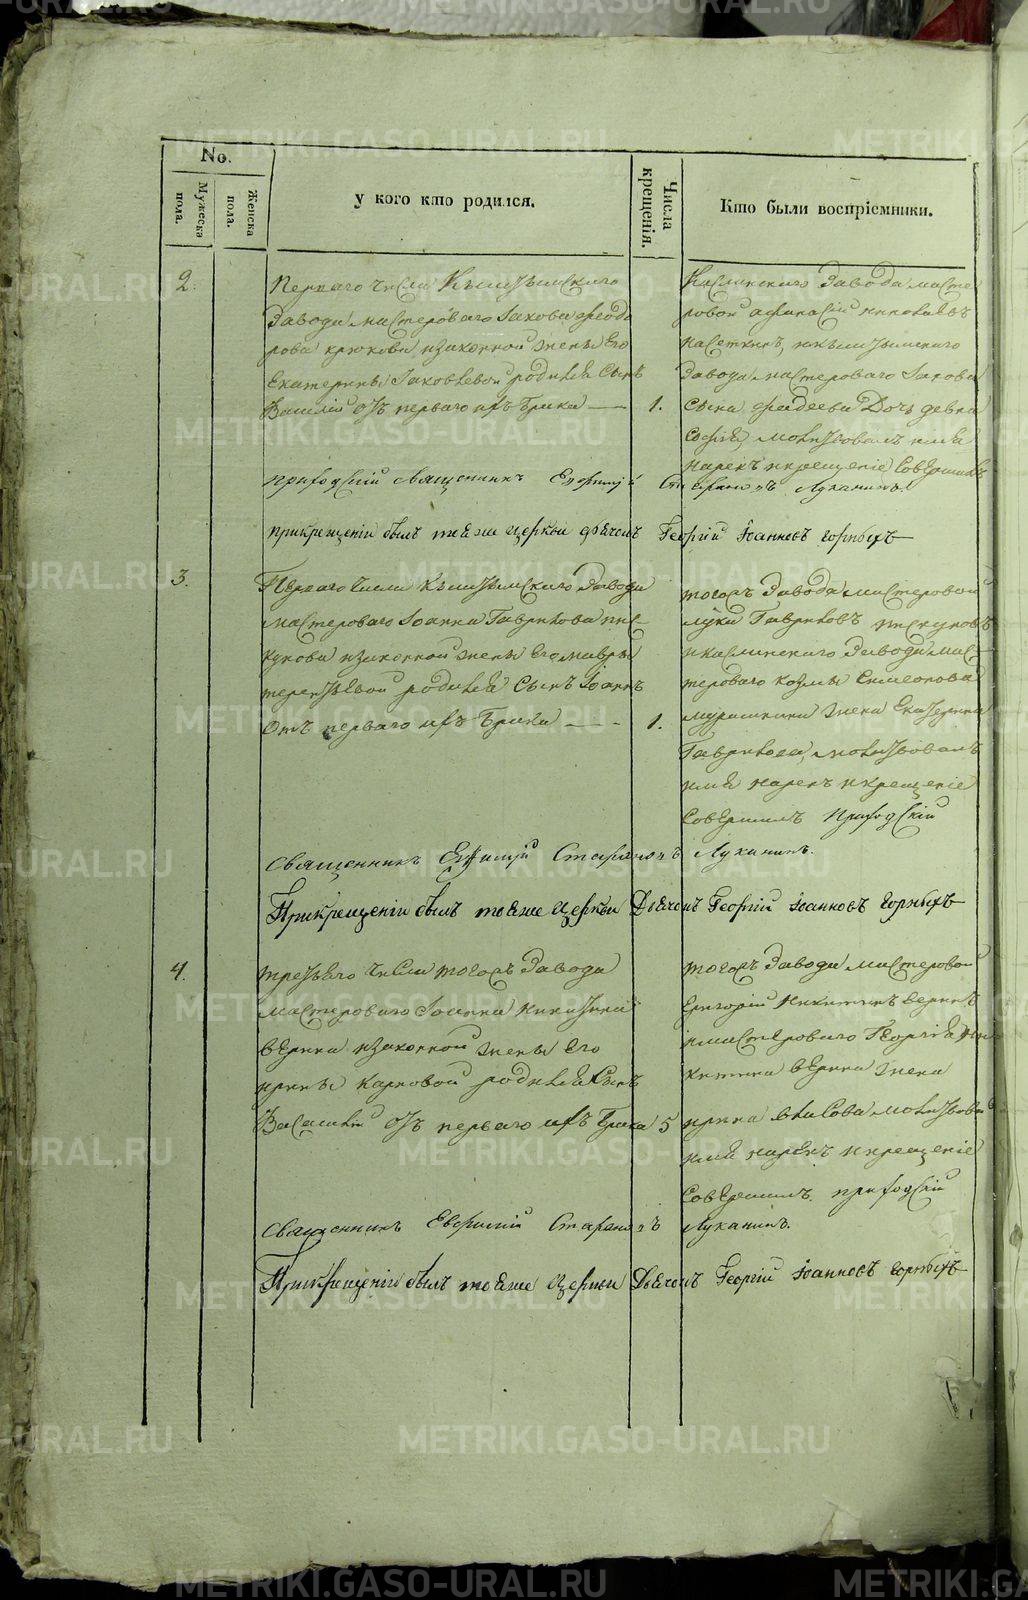 No.
Мужеска пола.
Женска пола.
у кого кто родился.
Числа крещенія.
Кто были воспріемники.
2.
Перваго числа Кыштымскаго
завода мастероваго Іакова Феодо
рова Крюкова изаконной жены Его
Екатерины Іаковлевой родился Сынъ
Василій отъ перваго ихъ брака
1.
Каслинскаго Завода масте
ровой Афанасій
инкыштымскаго
Завода мастероваго Іакова
Сына Фадеева Дочь девка
Софія, молитвовалъ имя
нарекъ икрещеніе Совершилъ
приходскій Священникъ Евфимій Стефановъ Луканинъ.
прикрещеніи былъ тояже церкви дьячокъ Георгій Іоанновъ Горныхъ
3.
Перваго числа Кыштымскаго Завода
мастероваго Іоанна Гаврилова пис
кунова изаконной жены Его мавры
терентьевой родился Сынъ Іоаннъ
Отъ перваго ихъ брака
1.
тогожъ Завода мастеровой
лука Гавриловъ пискуновъ
икаслинскаго Завода мас
тероваго козмы Симеонова
жена Екатерина
Гаврилова, молитвовалъ
имя нарекъ икрещеніе
Совершилъ приходскій
священникъ Евфимій Стефановъ Луканинъ.
Прикрещеніи былъ тояже церкви Дьячокъ Георгій Іоанновъ Горныхъ
4.
третьего числа тогожъ Завода
мастероваго Іоанна Никитина
изаконной жены Его
ирины карповой родился Сынъ
отъ перваго ихъ брака
5
тогожъ Завода мастеровой
Григорій Никитинъ
имастероваго Георгія Ни
китина жена
ирина молитвовалъ
имя нарекъ икрещеніе
Совершилъ приходскій
Священникъ Евфимій Стефановъ Луканинъ.
Прикрещеніи былъ тояже церкви Дьячокъ Георгій Іоанновъ Горныхъ
METRIKI.GASO-URAL.RU